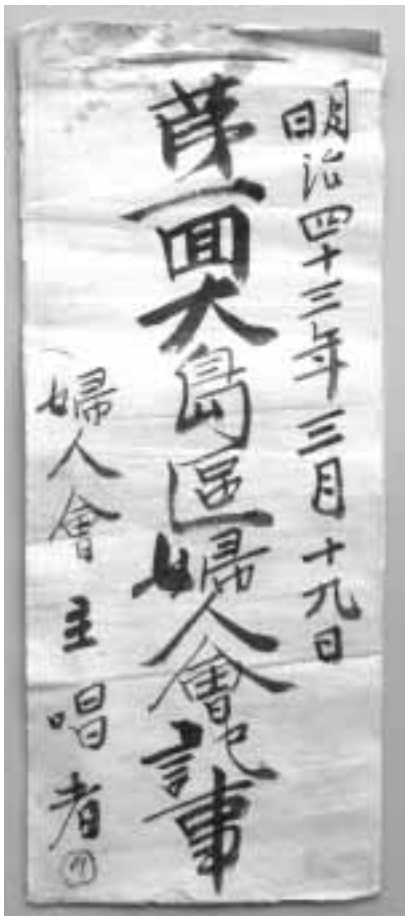 明治四十三年三月十九日
第一回大島區婦人會記事
婦人會主唱者